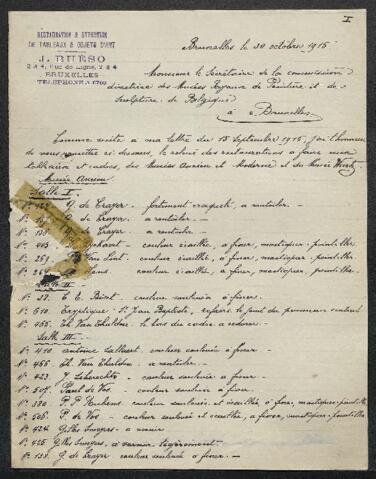 I
RESTAURATION & ENTRETIEN
DE TABLEAUX & OBJETS D'ART
J. BUÉSO
2 & 4, Rue de Ligne, 2 & 4
BRUXELLES
TELEPHONE A 6760
Bruxelles le 30 octobre 1915
Monsieur le Secrétaire de la commission
directrice des Musées Royaux de Peinture et de
Sculpture de Belgique
à Bruxelles
Comme suite à ma lettre du 15 Septembre 1915, j'ai l'honneur
de vous remettre ci-dessous, le relevé des restaurations à faire aux
tableaux et cadres, des Musées Ancien et Moderne et du Musée Wiertz
Musée Ancien
Salle I
G. de Crayer. fortement craquelé, a rentoiler. -
de Crayer. a rentoiler. -
G. de Crayer. a rentoiler. -
N° couleur écaillée, à fixer, mastiquer-pointiller
N° 259 Van Loint. couleur écaillée, à fixer, mastiquer, pointiller.
N° couleur écaillée, a fixer, mastiquer-pointiller.
II
N° 27. couleur soulevée à fixer.
N° 570. Tryptique. St Jean Baptiste, refaire le fond du panneau central
N° 455. Th. Van Thulden. le bas du cadre a redorer. -
Salle III
N° 410 antoine Sallaert. couleur soulevée à fixer. -
N° 456 Th. Van Thulden a rentoiler. -
N° couleur soulevée a fixer. -
N° 507. Paul de Vos. couleur soulevée a fixer. -
N° 380 P. P. Rubens. couleur soulevée et écaillée, à fixer, mastiquer-pointiller
N° 506. P. de Vos - couleur soulevée et écaillée, a fixer, mastiquer-pointiller
N° 424 Snyers - a vernir
N° 425 Snyers, a vernir légèrement
N° G. de Crayer couleur soulevée a fixer. -